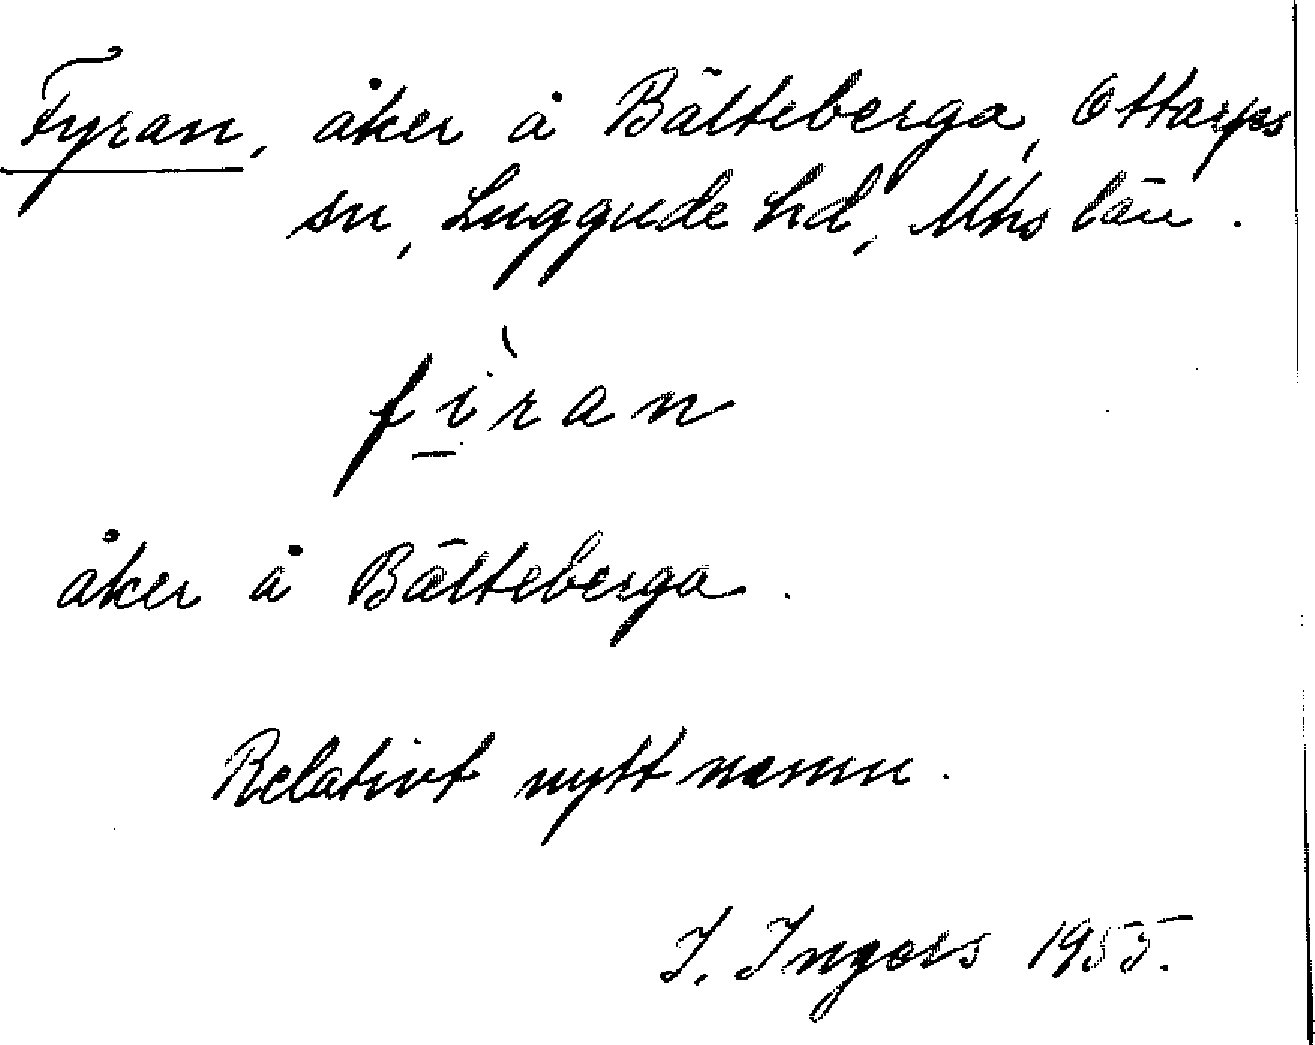 Fyran, åker å Bälteberga, Ottarps
sn, Luggude hd, Mhs län.
fìran
åker å Bälteberga.
Relativt nytt namn.
I. Ingers 1955.